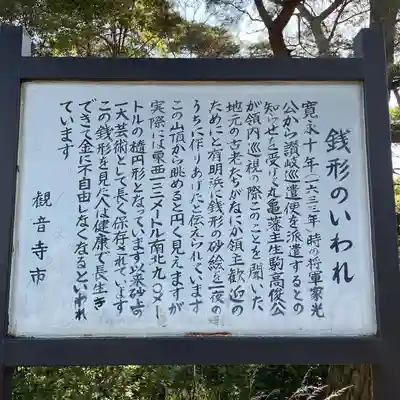 銭形のいわれ
寛永十年(一六三三年)時の将軍家光
公から讃岐巡遣使を派遣するとの
知らせを受けた丸亀藩主生駒高俊公
が領内巡視の際このことを聞いた
地元の古老たちがなにか領主歓迎の
ためにと有明浜に銭形の砂絵を一夜の
うちに作りあげたと伝えられています
この山頂から眺めると円く見えますが
実際には東西一二二メートル南北九〇メー
トルの楕円形となっています以来砂の
一大芸術として長く保存されています
この銭形を見た人は健康で長生き
できて金に不自由しなくなるといわれ
ています
観音寺市